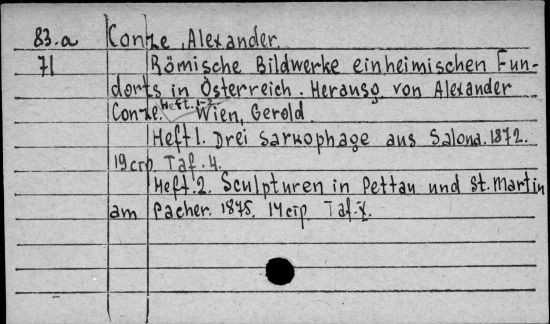 83.a Conze, Alexander.
71 Römische Bildwerke einheimischen Fun-
dorts in Österreich. Herausg. von Alexander
Conze. Heft. 1-2. Wien, Gerold.
Heft 1. Drei Sarkophage aus Salona. 1872.
19 стр. Taf. 4.
Heft. 2. Sculpturen in Pettau und St. Martin
am Pacher. 1875. 14 стр. Taf. X.